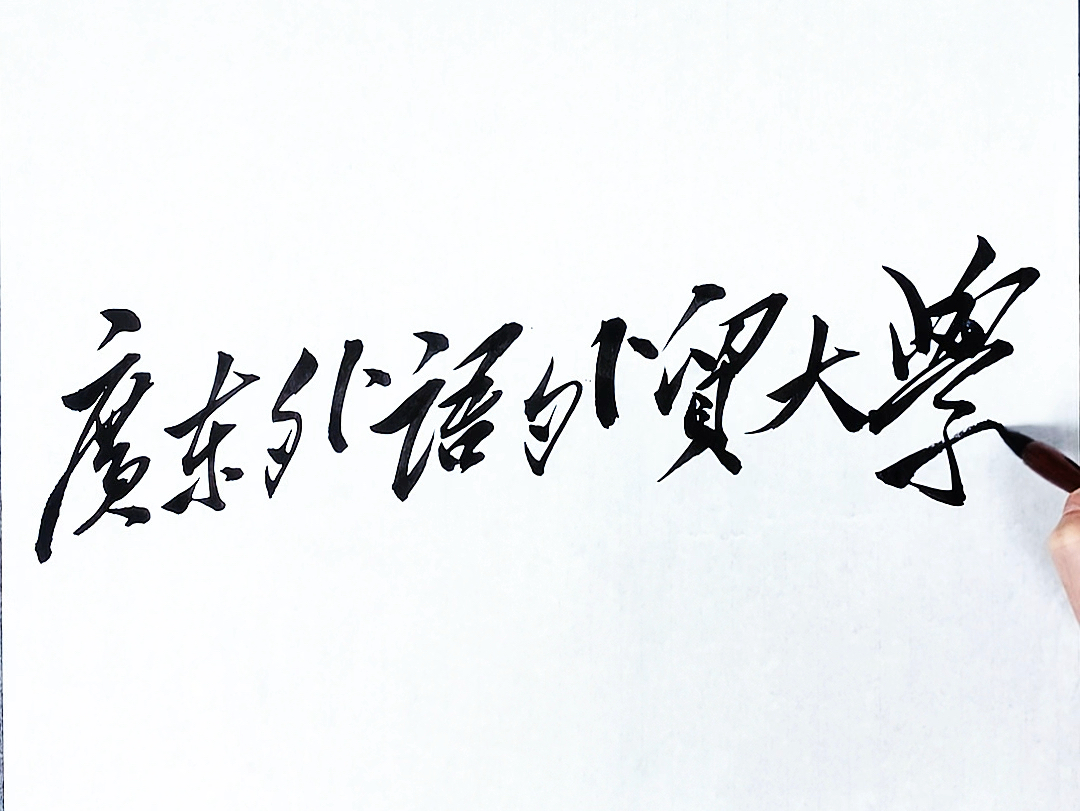 廣东外語外貿大學